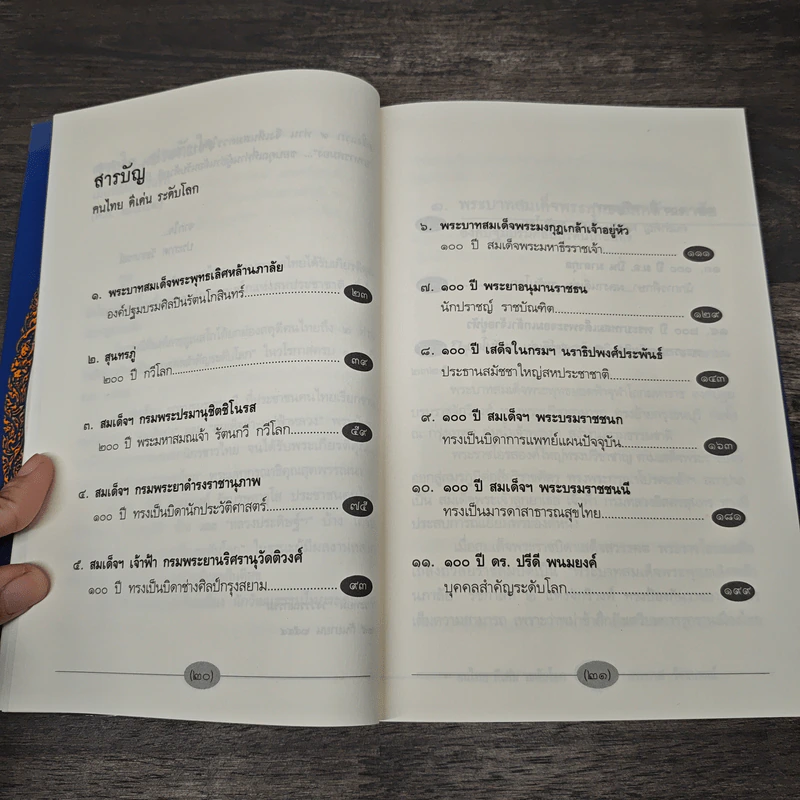 สารบัญ
คนไทย ดีเด่น ระดับโลก
๑. พระบาทสมเด็จพระพุทธเลิศหล้านภาลัย
องค์ปฐมบรมศิลปินรัตนโกสินทร์........................ ๒๓
๒. สุนทรภู่
๒๐๐ ปี กวีโลก........................................ ๓๙
๓. สมเด็จฯ กรมพระปรมานุชิตชิโนรส
๒๐๐ ปี พระมหาสมณเจ้า รัตนกวี กวีโลก............ ๕๙
๔. สมเด็จฯ กรมพระยาดำรงราชานุภาพ
๑๐๐ ปี ทรงเป็นบิดานักประวัติศาสตร์.................. ๗๕
๕. สมเด็จฯ เจ้าฟ้า กรมพระยานริศรานุวัดติวงศ์
๑๐๐ ปี ทรงเป็นบิดาช่างศิลป์กรุงสยาม................ ๙๓
(๒๐)
๖. พระบาทสมเด็จพระมงกุฎเกล้าเจ้าอยู่หัว
๑๐๐ ปี สมเด็จพระมหาธีรราชเจ้า.................. ๑๑๑
๗. ๑๐๐ ปี พระยาอนุมานราชธน
นักปราชญ์ ราชบัณฑิต.............................. ๑๒๙
๘. ๑๐๐ ปี เสด็จในกรมฯ นราธิปพงศ์ประพันธ์
ประธานสมัชชาใหญ่สหประชาชาติ.................. ๑๔๓
๙. ๑๐๐ ปี สมเด็จฯ พระบรมราชชนก
ทรงเป็นบิดาการแพทย์แผนปัจจุบัน................ ๑๖๓
๑๐. ๑๐๐ ปี สมเด็จฯ พระบรมราชชนนี
ทรงเป็นมารดาสาธารณสุขไทย...................... ๑๘๑
๑๑. ๑๐๐ ปี ดร. ปรีดี พนมยงค์
บุคคลสำคัญระดับโลก................................ ๑๙๙
(๒๑)